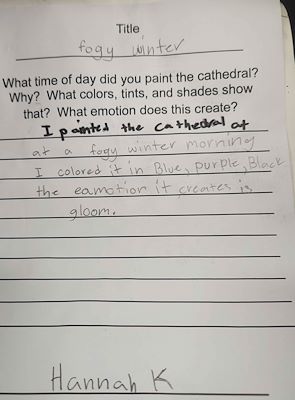 Title
fogy winter
What time of day did you paint the cathedral?
Why? What colors, tints, and shades show
that? What emotion does this create?
I painted the Cathedral at
at a fogy winter morning
I colored it in Blue, purple, Black
the eamotion it creates is
gloom.
Hannah K